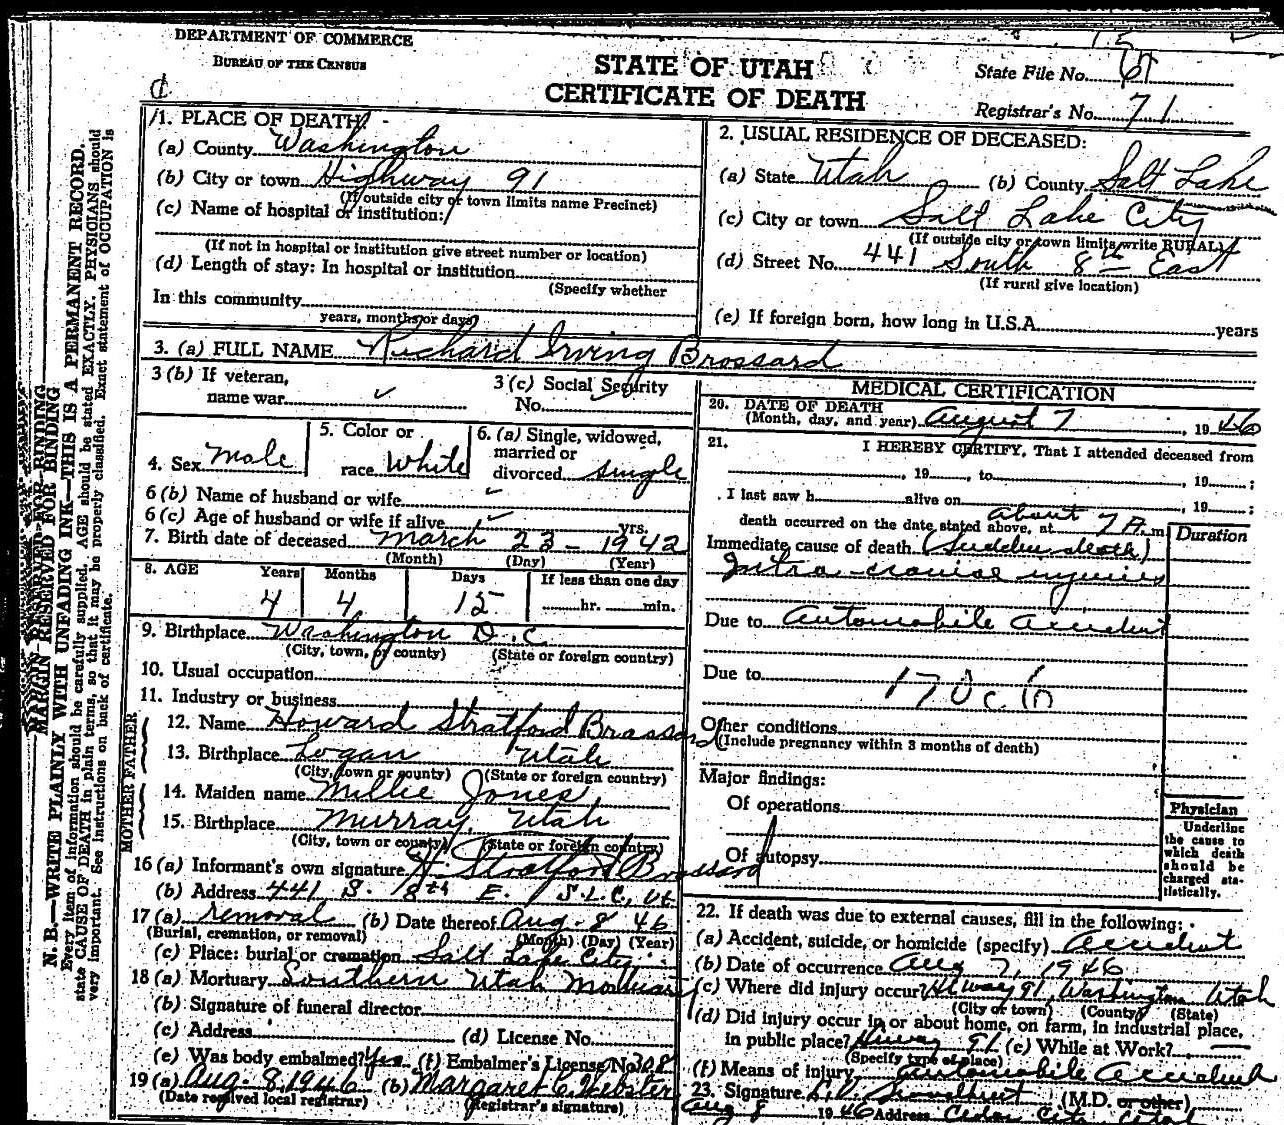 DEPARTMENT OF COMMERCE
BUREAU OF THE CENSUS
STATE OF UTAH
CERTIFICATE OF DEATH
State File No.
Registrar's No. 71
1. PLACE OF DEATH:
(a) County Washington
(b) City or town Highway 91
(If outside city or town limits name Precinct)
(c) Name of hospital or institution:
(If not in hospital or institution give street number or location)
(d) Length of stay: In hospital or institution
(Specify whether
In this community
years, months or days)
2. USUAL RESIDENCE OF DECEASED:
(a) State Utah (b) County Salt Lake
(c) City or town Salt Lake City
(If outside city or town limits write RURAL)
(d) Street No. 441 South 8th East
(If rural give location)
(e) If foreign born, how long in U.S.A. years
3. (a) FULL NAME Richard Irving Brossard
3 (b) If veteran,
name war ✓
3 (c) Social Security
No.
4. Sex Male
5. Color or
race White
6. (a) Single, widowed,
married or
divorced Single
6 (b) Name of husband or wife ✓
6 (c) Age of husband or wife if alive ✓ yrs.
7. Birth date of deceased March 23 - 1942
(Month) (Day) (Year)
8. AGE Years Months Days If less than one day
4 4 15 hr. min.
9. Birthplace Washington D.C.
(City, town, or county) (State or foreign country)
10. Usual occupation
11. Industry or business
FATHER
12. Name Howard Stratford Brossard
13. Birthplace Logan Utah
(City, town or county) (State or foreign country)
MOTHER
14. Maiden name Millie Jones
15. Birthplace Murray, Utah
(City, town or county) (State or foreign country)
16 (a) Informant's own signature H. Stratford Brossard
(b) Address 441 S. 8th E. S.L.C., Ut
17 (a) removal (b) Date thereof Aug. 8 46
(Burial, cremation, or removal) (Month) (Day) (Year)
(c) Place: burial or cremation Salt Lake City
18 (a) Mortuary Southern Utah Mortuary
(b) Signature of funeral director
(c) Address (d) License No.
(e) Was body embalmed? Yes (f) Embalmer's License No. 308
19 (a) Aug. 8, 1946 (b) Margaret C. Webster
(Date received local registrar) (Registrar's signature)
MEDICAL CERTIFICATION
20. DATE OF DEATH
(Month, day, and year) August 7, 1946
21. I HEREBY CERTIFY, That I attended deceased from
, 19 , to , 19 ;
I last saw h alive on , 19 ;
death occurred on the date stated above, at about 7 A. m
Duration
Immediate cause of death (Sudden death)
Intra cranial injuries
Due to Automobile accident
Due to
170c
Other conditions
(Include pregnancy within 3 months of death)
Major findings:
Of operations
Of autopsy
Physician
Underline
the cause to
which death
should be
charged sta-
tistically.
22. If death was due to external causes, fill in the following:
(a) Accident, suicide, or homicide (specify) Accident
(b) Date of occurrence Aug 7, 1946
(c) Where did injury occur? Hiway 91 Washington Utah
(City or town) (County) (State)
(d) Did injury occur in or about home, on farm, in industrial place,
in public place? Hiway 91 (e) While at Work? —
(Specify type of place)
(f) Means of injury Automobile Accident
23. Signature (M.D. or other)
Aug 8 1946 Address Cedar City Utah
MARGIN RESERVED FOR BINDING
N. B.—WRITE PLAINLY WITH UNFADING INK—THIS IS A PERMANENT RECORD.
Every item of information should be carefully supplied. AGE should be stated EXACTLY. PHYSICIANS should
state CAUSE OF DEATH in plain terms, so that it may be properly classified. Exact statement of OCCUPATION is
very important. See instructions on back of certificate.